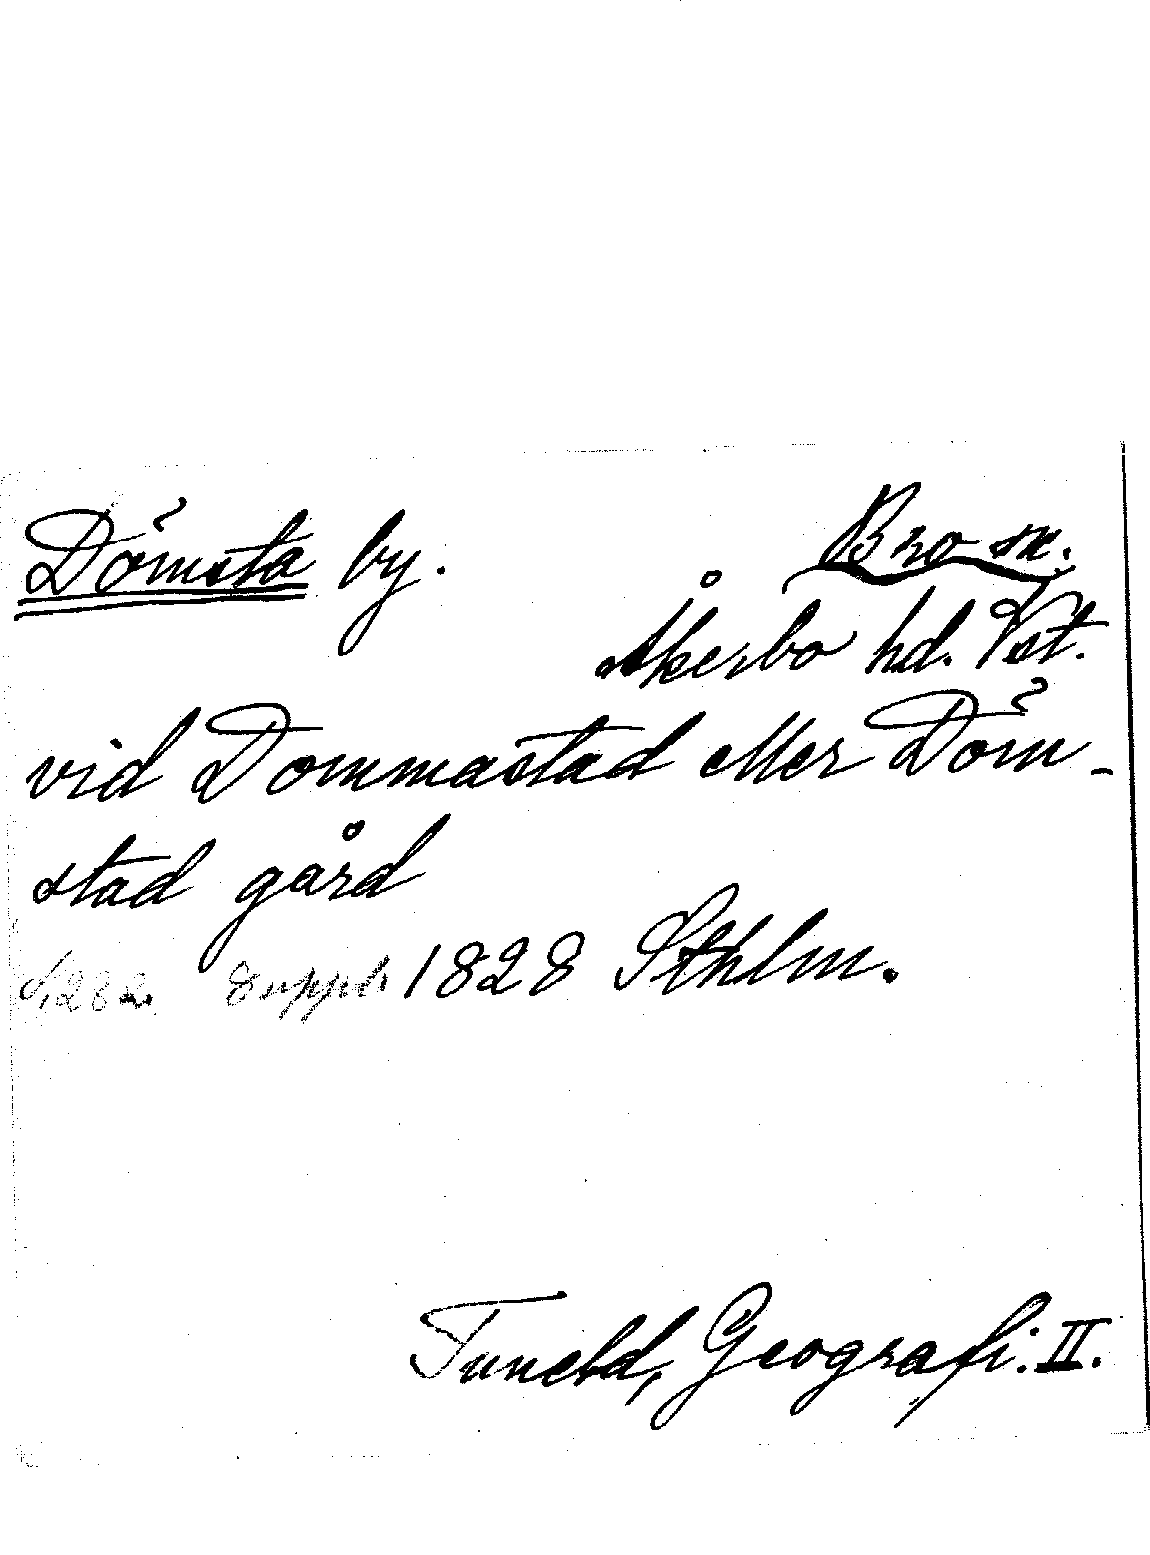 Dömsta by. Bro sn.
Åkerbo hd. Vst.
vid Dommastad eller Döm-
stad gård
S. 282. Suppl. 1828 Sthlm.
Tuneld, Geografi. II.